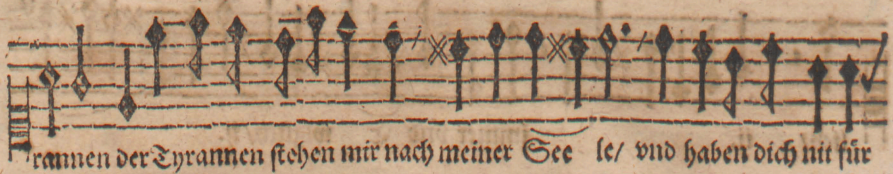 rannen der Tyrannen ſtehen mir nach meiner See le/ vnd haben dich nit für